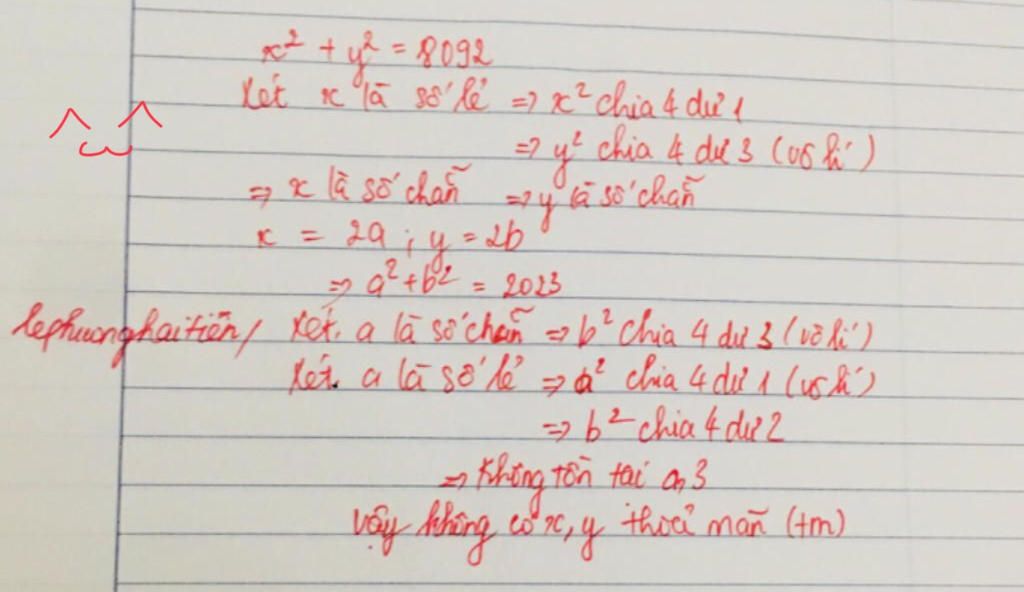 x² + y² = 8092
Xét x là số lẻ => x² chia 4 dư 1
=> y² chia 4 dư 3 (vô lí)
=> x là số chẵn => y là số chẵn
x = 2a ; y = 2b
=> a² + b² = 2023
lephuonghaitien/ Xét. a là số chẵn => b² chia 4 dư 3 (vô lí)
Xét. a là số lẻ => a² chia 4 dư 1 (vô lí)
=> b² chia 4 dư 2
=> Không tồn tại a, 3
Vậy không có x, y thoả mãn (tm)